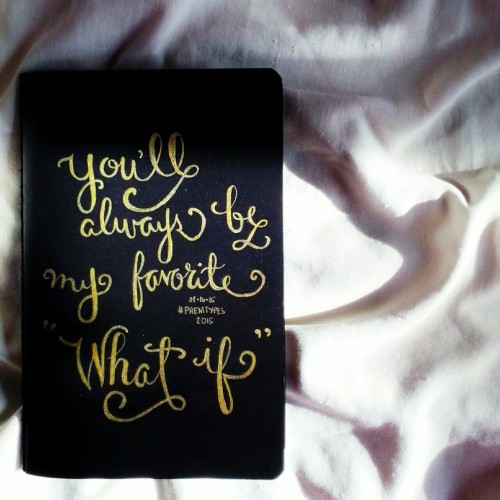 you'll
always be
my favorite
01·16·15
#PRENTYPES
2015
"What if"